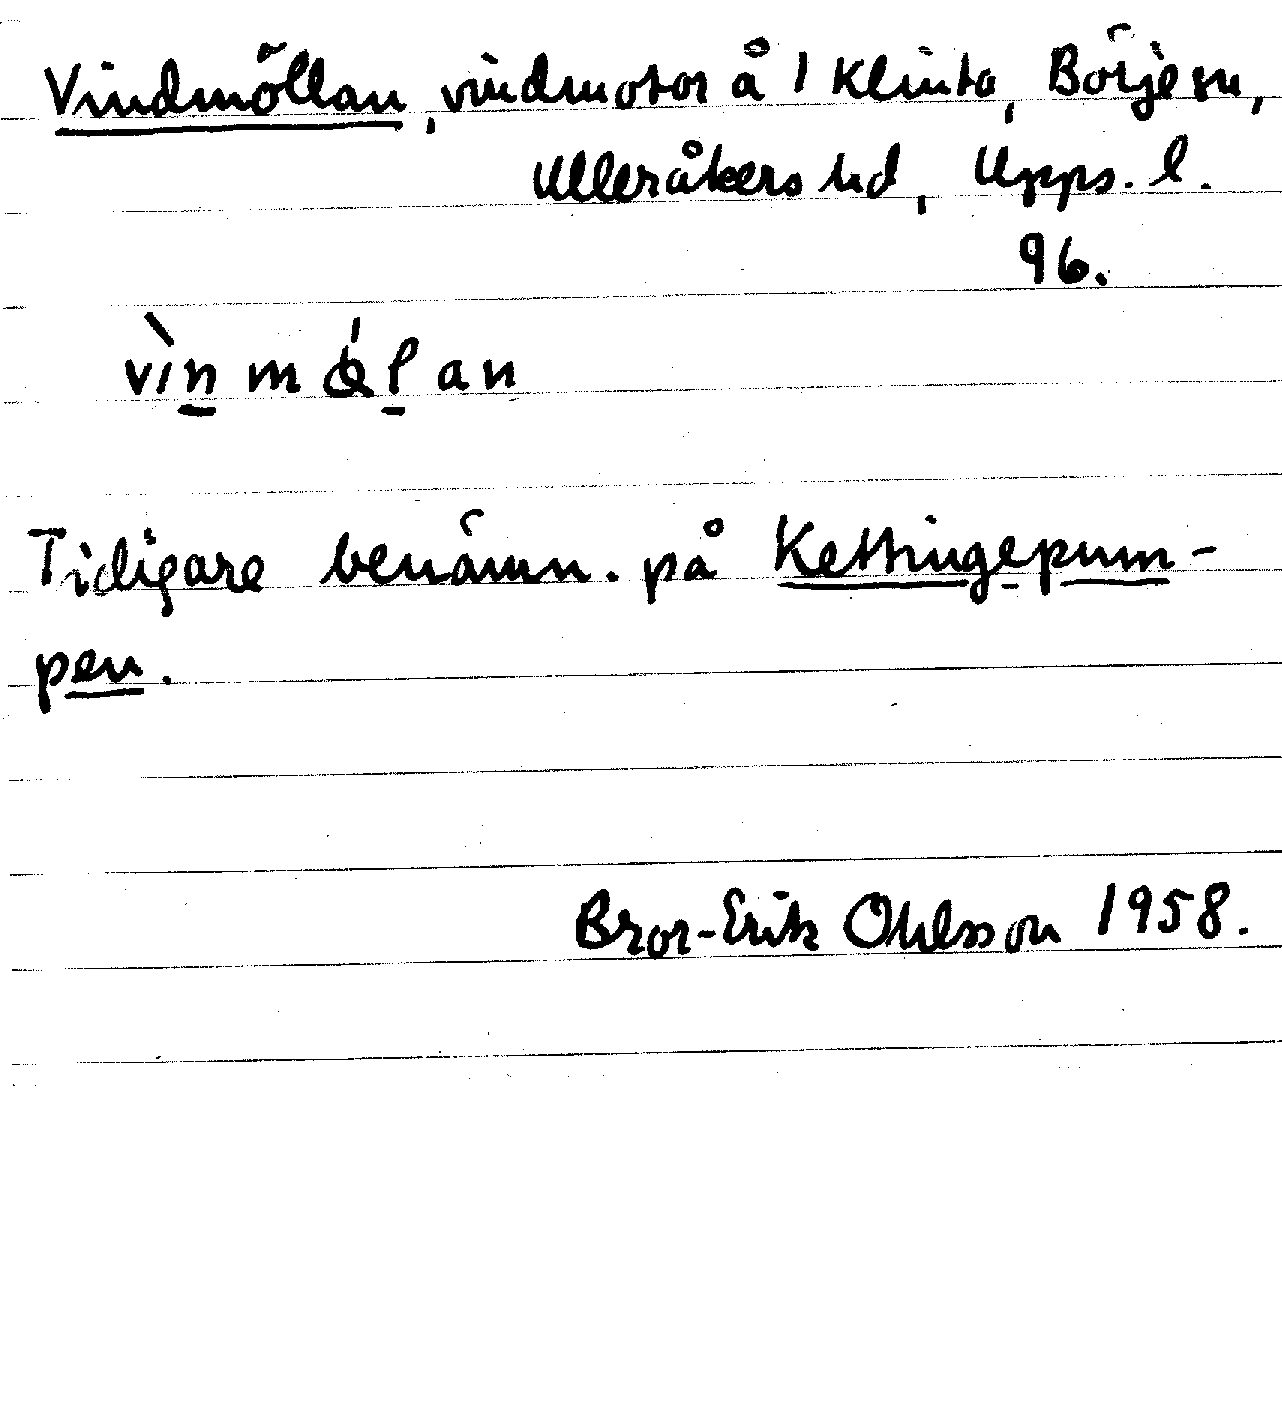 Vindmöllan, vindmotor å 1 Klinta, Börje sn,
Ulleråkers hd, Upps. l.
96.
vìn mǿl an
Tidigare benämn. på Kettingepum-
pen.
Bror-Erik Ohlsson 1958.